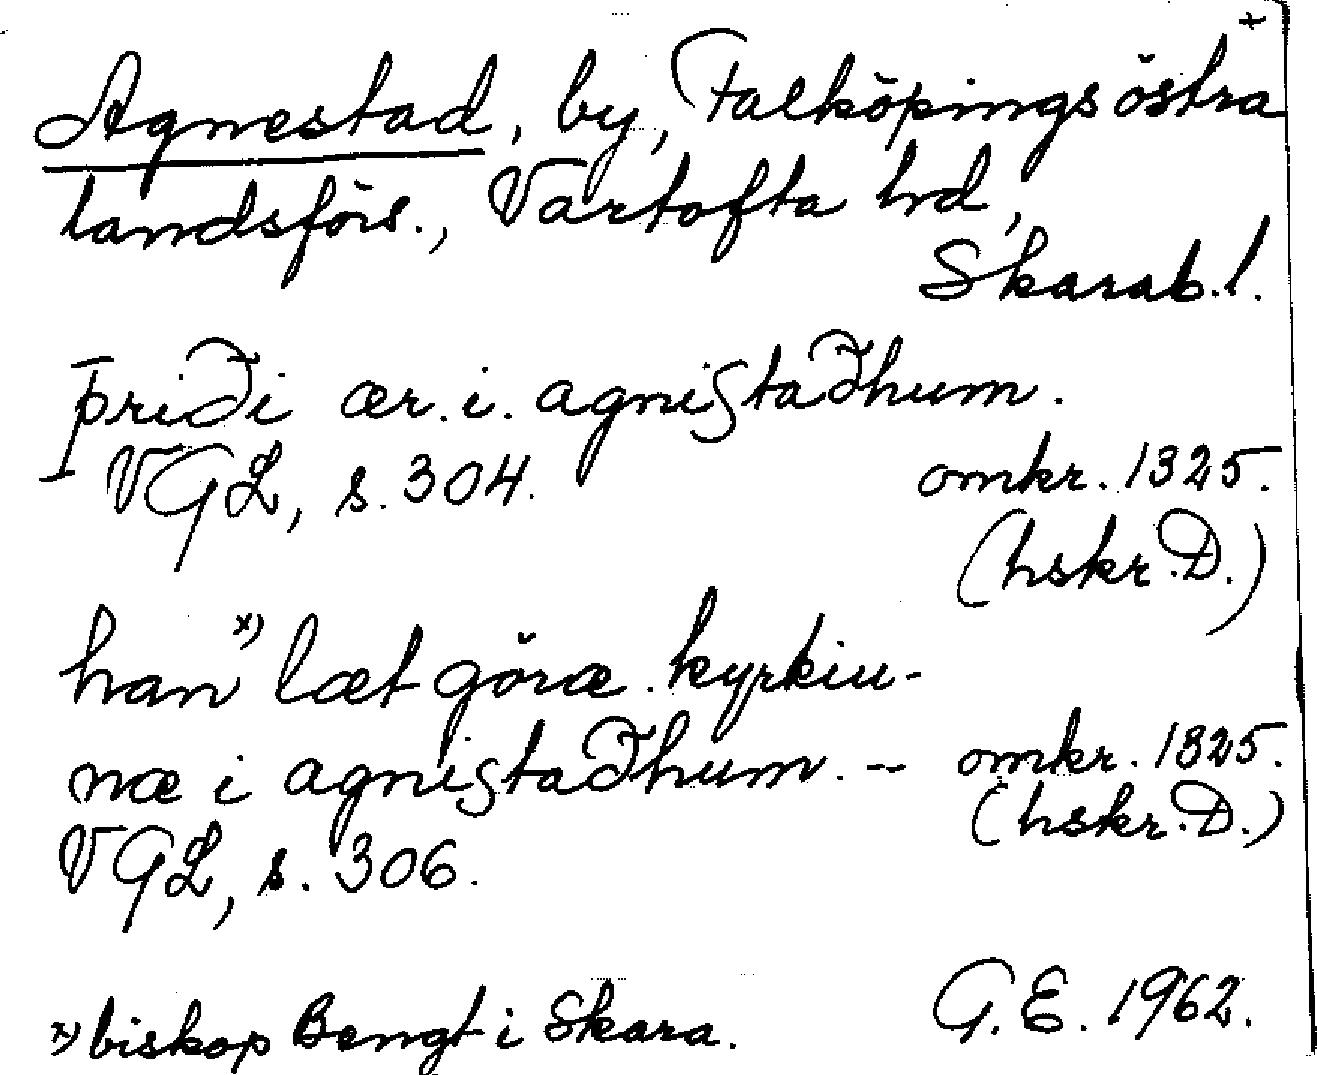 +
Agnestad, by, Falköpings östra
landsförs., Vartofta hd,
Skarab. l.
þriði ær. i. agniʃtaðhum.
VGL, s. 304. omkr. 1325.
(hskr. D.)
han x) læt göræ. kyrkiu-
næ i agniʃtaðhum. – omkr. 1325.
(hskr. D.)
VGL, s. 306.
G. E. 1962.
x) biskop Bengt i Skara.